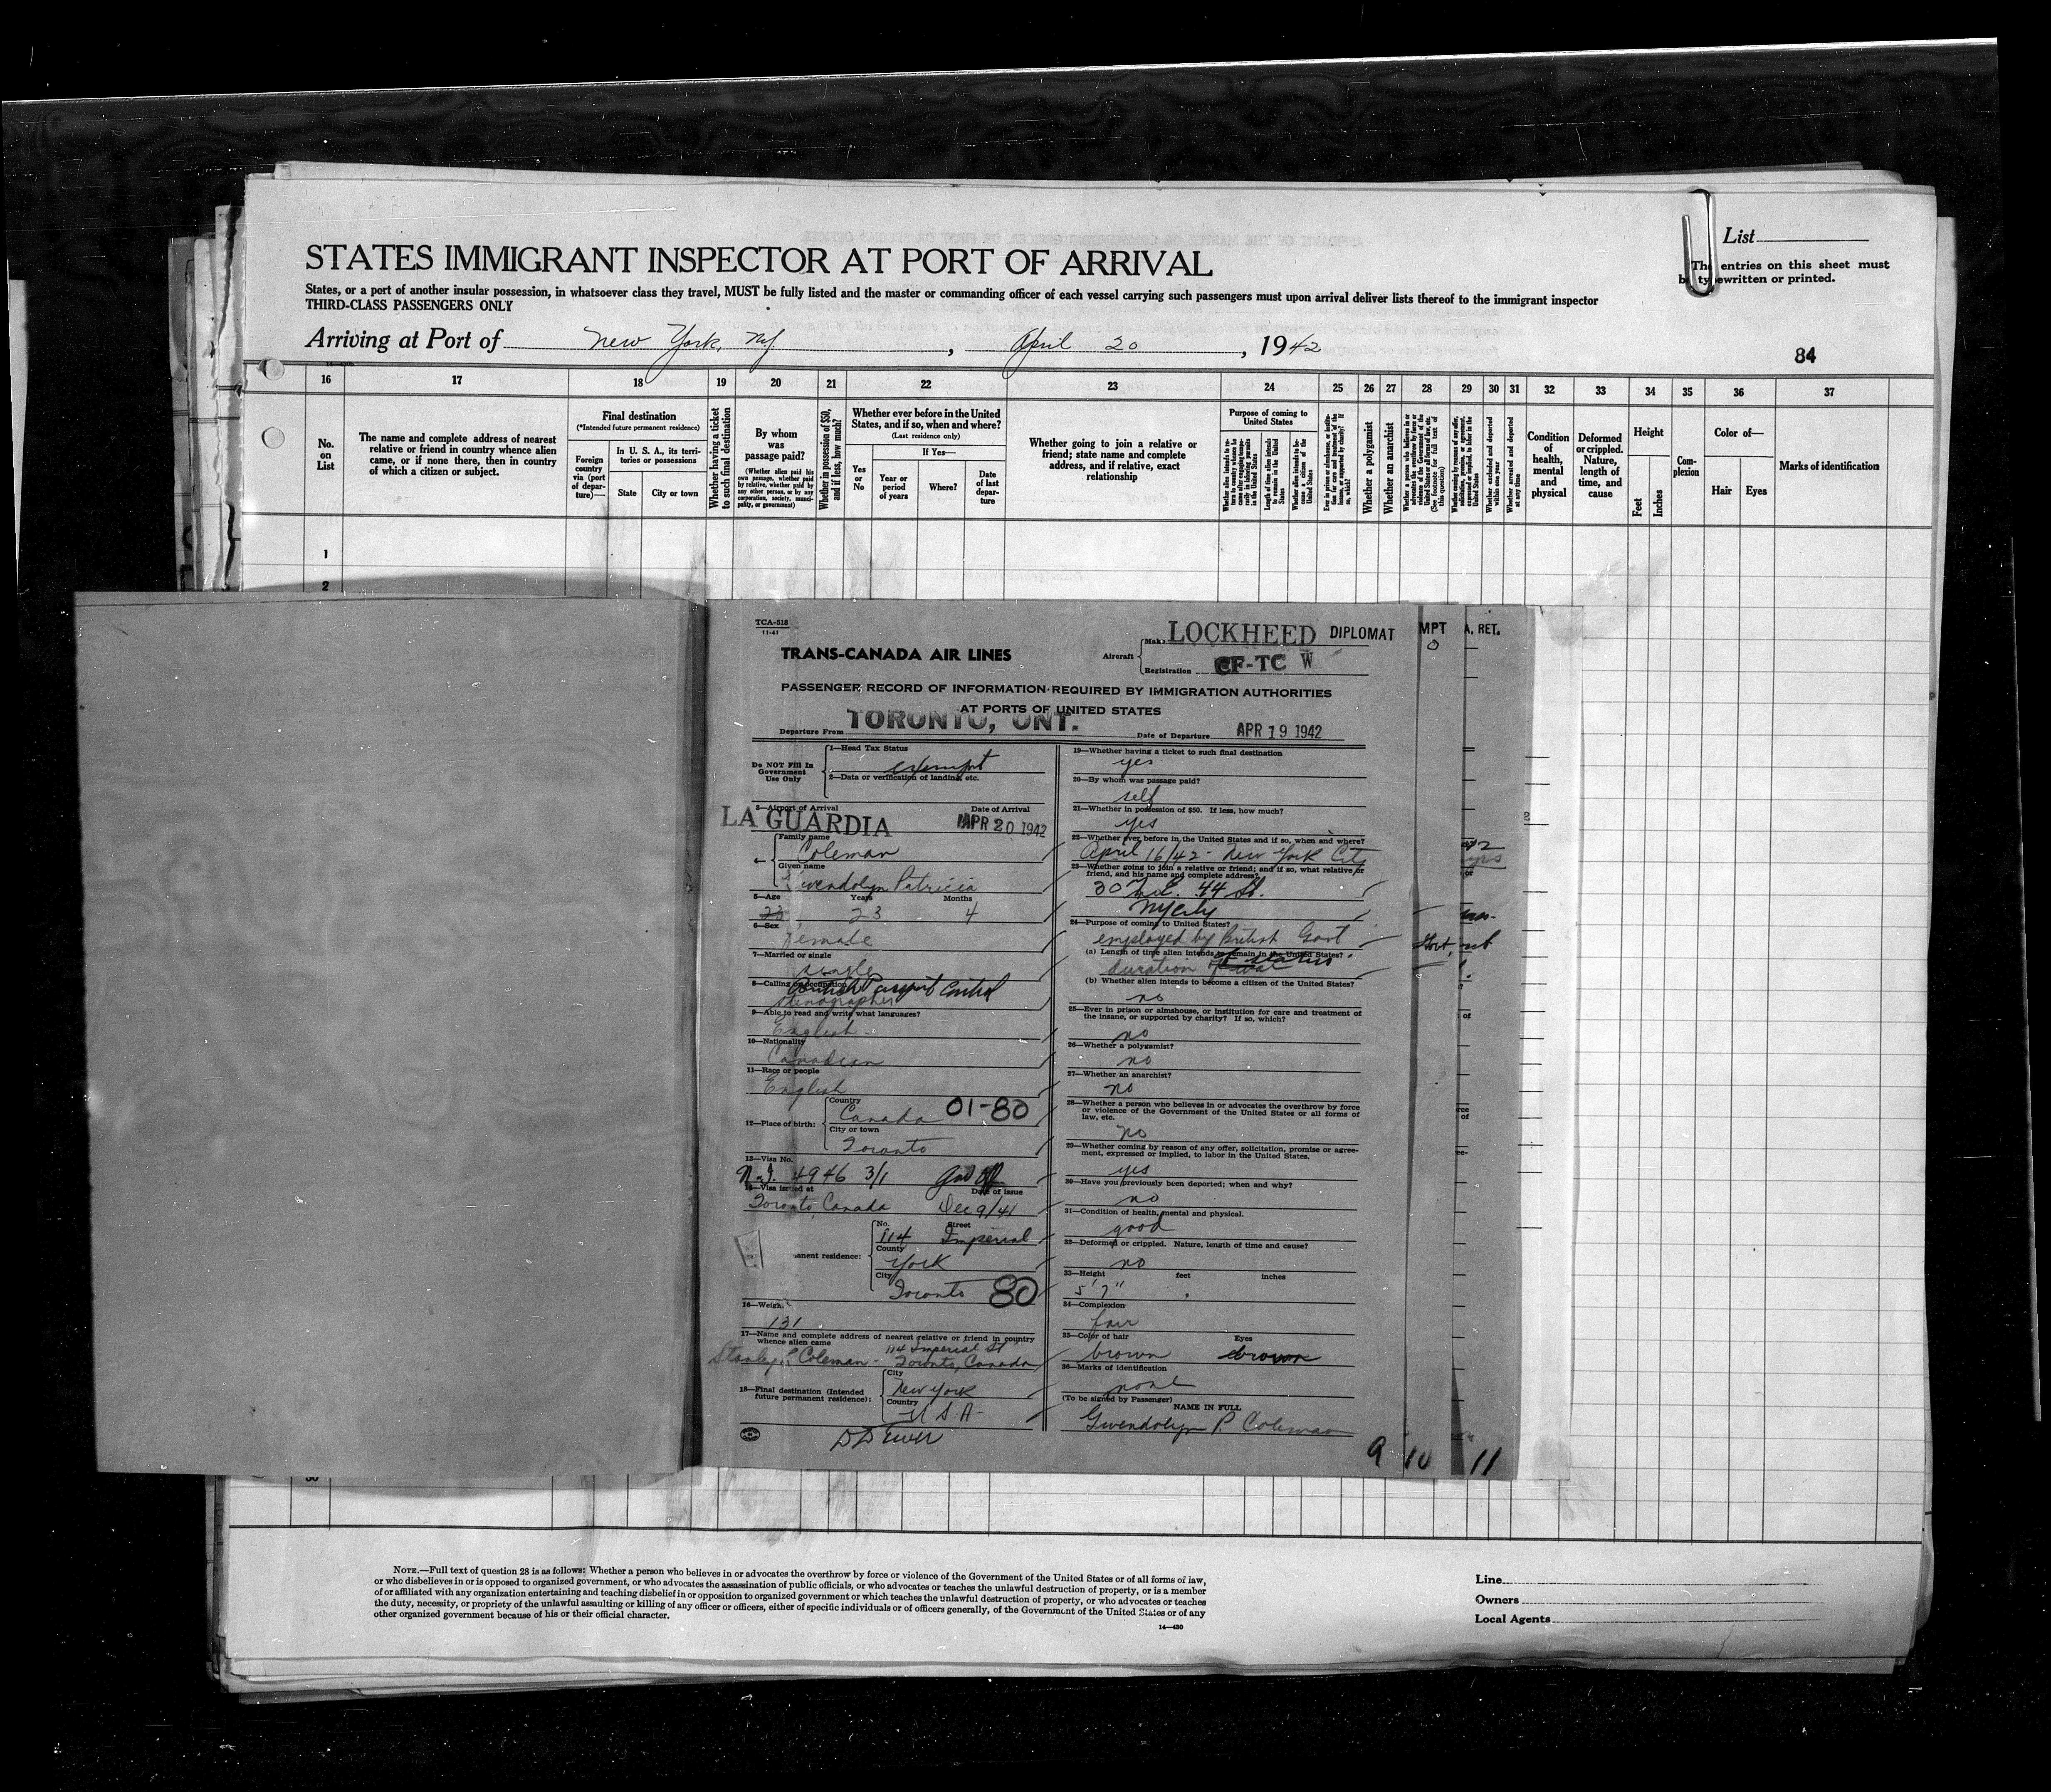 List
The entries on this sheet must
be typewritten or printed.
STATES IMMIGRANT INSPECTOR AT PORT OF ARRIVAL
States, or a port of another insular possession, in whatsoever class they travel, MUST be fully listed and the master or commanding officer of each vessel carrying such passengers must upon arrival deliver lists thereof to the immigrant inspector
THIRD-CLASS PASSENGERS ONLY
Arriving at Port of New York, NY, April 20, 1942
84
16 17 18 19 20 21 22 23 24 25 26 27 28 29 30 31 32 33 34 35 36 37
No. on List
The name and complete address of nearest relative or friend in country whence alien came, or if none there, then in country of which a citizen or subject.
Final destination
(*Intended future permanent residence)
Foreign country via (port of departure)—
In U. S. A., its territories or possessions
State
City or town
Whether having a ticket to such final destination
By whom was passage paid?
(Whether alien paid his own passage, whether paid by relative, whether paid by any other person, or by any corporation, society, municipality, or government)
Whether in possession of $50, and if less, how much?
Whether ever before in the United States, and if so, when and where?
(Last residence only)
Yes or No
If Yes—
Year or period of years
Where?
Date of last departure
Whether going to join a relative or friend; state name and complete address, and if relative, exact relationship
Purpose of coming to United States
Length of time alien intends to remain in the United States
Whether alien intends to become a citizen of the United States
Whether a polygamist
Whether an anarchist
Condition of health, mental and physical
Deformed or crippled. Nature, length of time, and cause
Height
Feet
Inches
Complexion
Color of—
Hair
Eyes
Marks of identification
1
2
TCA-518
11-41
TRANS-CANADA AIR LINES
Aircraft
Make LOCKHEED
Registration CF-TC W
DIPLOMAT
MPT
A. RET.
PASSENGER RECORD OF INFORMATION REQUIRED BY IMMIGRATION AUTHORITIES
AT PORTS OF UNITED STATES
Departure From TORONTO, ONT.
Date of Departure APR 19 1942
Do NOT Fill In Government Use Only
1—Head Tax Status
exempt
2—Data or verification of landing, etc.
3—Airport of Arrival
LA GUARDIA
Date of Arrival
APR 20 1942
4—
Family name
Coleman
Given name
Gwendolyn Patricia
5—Age Years Months
23 4
6—Sex
Female
7—Married or single
single
8—Calling or occupation
British Passport Control
stenographer
9—Able to read and write what languages?
English
10—Nationality
Canadian
11—Race or people
English
12—Place of birth:
Country
Canada 01-80
City or town
Toronto
13—Visa No.
N.I. 4946 3/1
14—Visa issued at
Date of issue
Toronto, Canada Dec 9/41
anent residence:
No. Street
114 Imperial
County
York
City
Toronto 80
16—Weight
131
17—Name and complete address of nearest relative or friend in country
whence alien came
114 Imperial St
Stanley Coleman - Toronto, Canada
18—Final destination (Intended
future permanent residence):
City
New York
Country
U S A
19—Whether having a ticket to such final destination
yes
20—By whom was passage paid?
self
21—Whether in possession of $50. If less, how much?
yes
22—Whether ever before in the United States and if so, when and where?
April 16/42 - New York City
23—Whether going to join a relative or friend; and if so, what relative or
friend, and his name and complete address?
44 St.
NY City
24—Purpose of coming to United States?
employed by British Govt
(a) Length of time alien intends to remain in the United States?
duration of
(b) Whether alien intends to become a citizen of the United States?
no
25—Ever in prison or almshouse, or institution for care and treatment of
the insane, or supported by charity? If so, which?
no
26—Whether a polygamist?
no
27—Whether an anarchist?
no
28—Whether a person who believes in or advocates the overthrow by force
or violence of the Government of the United States or all forms of
law, etc.
no
29—Whether coming by reason of any offer, solicitation, promise or agree-
ment, expressed or implied, to labor in the United States.
yes
30—Have you previously been deported; when and why?
no
31—Condition of health, mental and physical.
good
32—Deformed or crippled. Nature, length of time and cause?
no
33—Height feet inches
5' 7"
34—Complexion
fair
35—Color of hair Eyes
brown brown
36—Marks of identification
none
(To be signed by Passenger)
NAME IN FULL
Gwendolyn P. Coleman
9 10 11
NOTE.—Full text of question 28 is as follows: Whether a person who believes in or advocates the overthrow by force or violence of the Government of the United States or of all forms of law,
or who disbelieves in or is opposed to organized government, or who advocates the assassination of public officials, or who advocates or teaches the unlawful destruction of property, or is a member
of or affiliated with any organization entertaining and teaching disbelief in or opposition to organized government or which teaches the unlawful destruction of property, or who advocates or teaches
the duty, necessity, or propriety of the unlawful assaulting or killing of any officer or officers, either of specific individuals or of officers generally, of the Government of the United States or of any
other organized government because of his or their official character.
14—430
Line
Owners
Local Agents